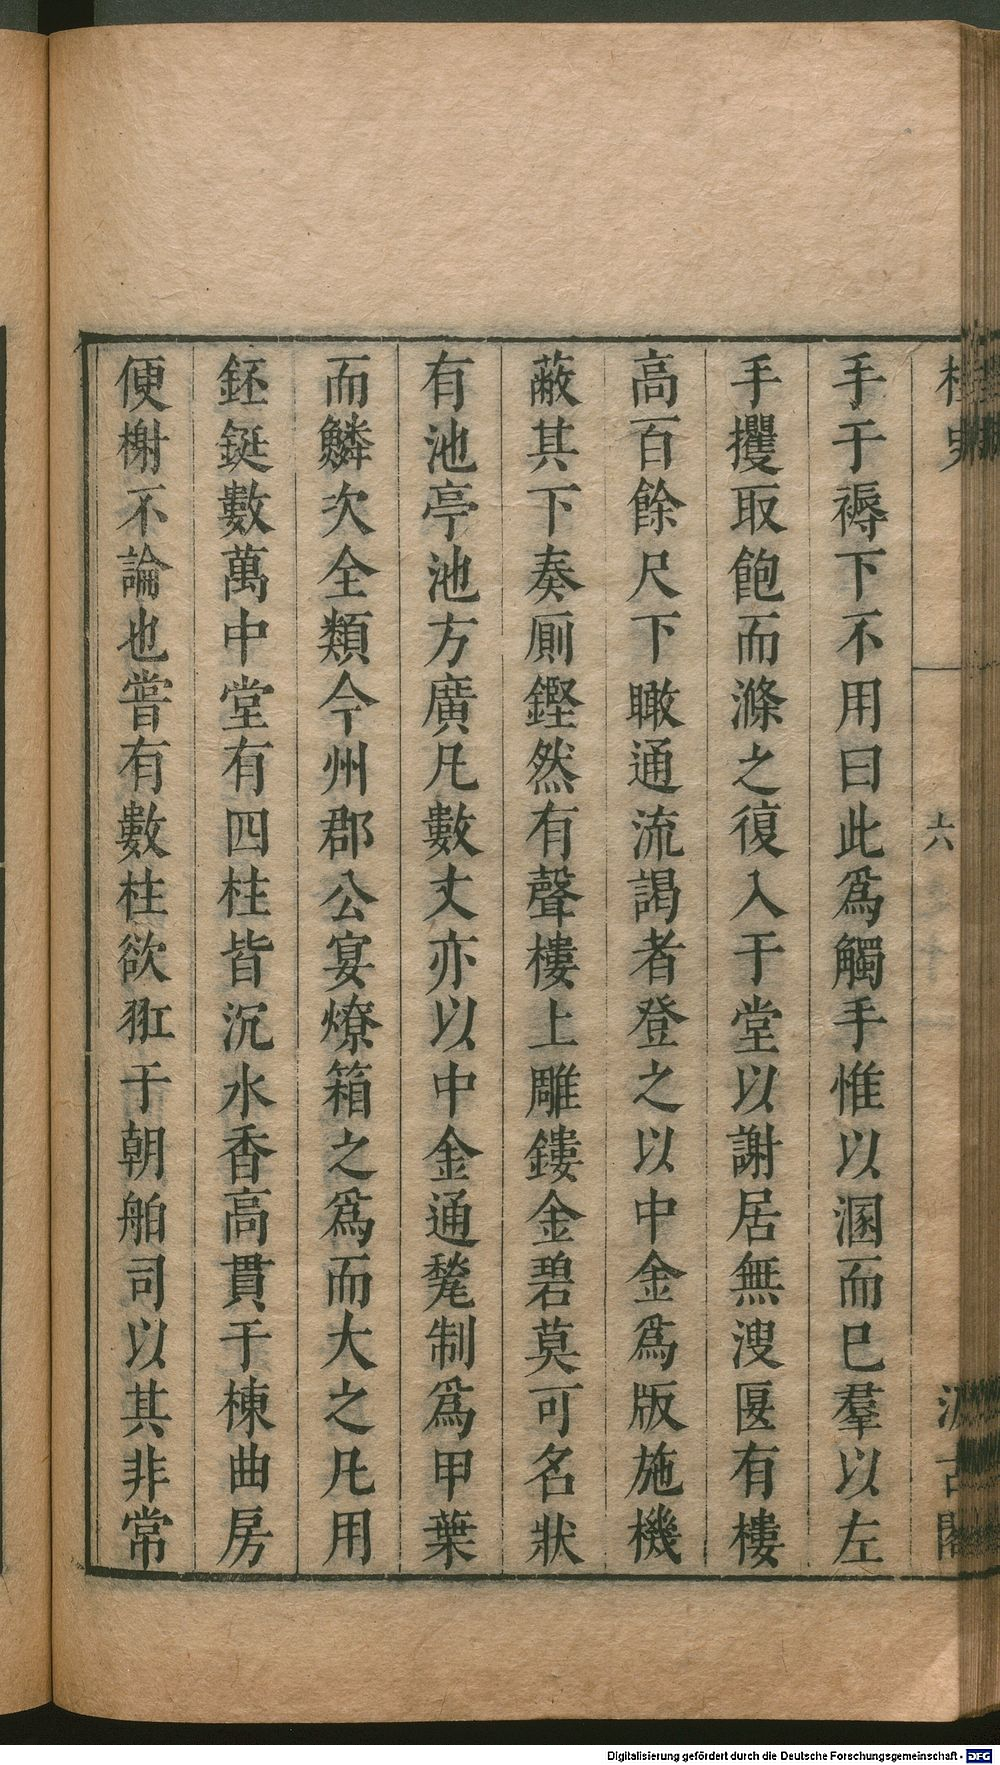 手于褥下不用曰此爲觸手惟以溷而巳羣以左
手攫取飽而滌之復入于堂以謝居無溲匽有樓
高百餘尺下瞰通流謁者登之以中金爲版施機
蔽其下奏厠鏗然有聲樓上雕鏤金碧莫可名狀
有池亭池方廣凡數丈亦以中金通甃制爲甲葉
而鱗次全類今州郡公宴燎箱之爲而大之凡用
鉟鋌數萬中堂有四柱皆沉水香高貫于棟曲房
便榭不論也嘗有數柱欲羾于朝舶司以其非常
六
Digitalisierung gefördert durch die Deutsche Forschungsgemeinschaft - DFG